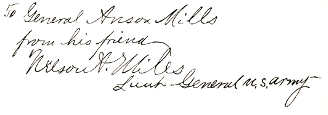 To General Anson Mills
from his friend
Nelson A. Miles
Lieut General U.S. Army